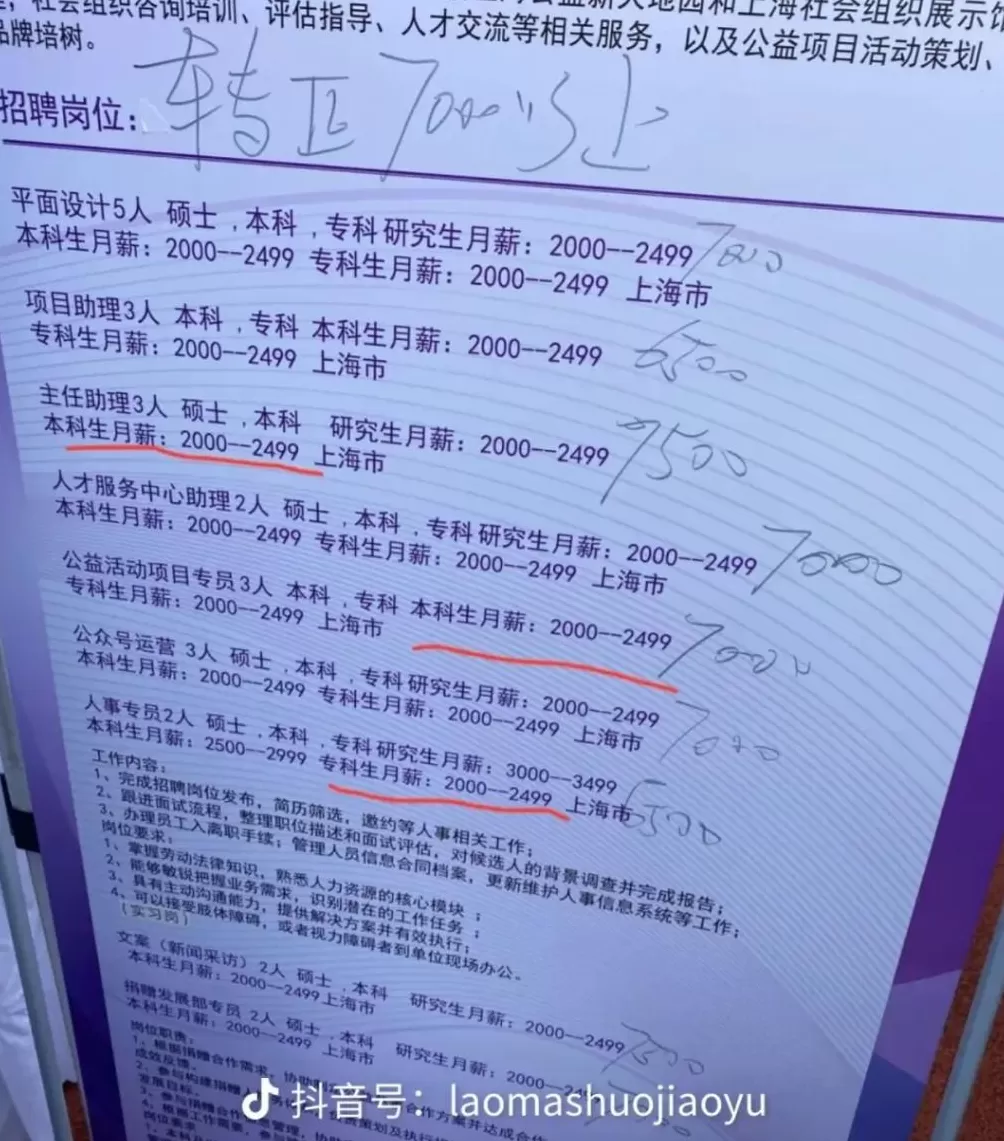 社会组织咨询培训、评估指导、人才交流等相关服务，以及公益项目活动策划、
品牌培树。
招聘岗位：转正7000以上
平面设计5人 硕士，本科，专科 研究生月薪：2000--2499 7000
本科生月薪：2000--2499 专科生月薪：2000--2499 上海市
项目助理3人 本科，专科 本科生月薪：2000--2499 6500
专科生月薪：2000--2499 上海市
主任助理3人 硕士，本科 研究生月薪：2000--2499 7500
本科生月薪：2000--2499 上海市
人才服务中心助理2人 硕士，本科，专科 研究生月薪：2000--2499 7000
本科生月薪：2000--2499 专科生月薪：2000--2499 上海市
公益活动项目专员3人 本科，专科 本科生月薪：2000--2499 7000
专科生月薪：2000--2499 上海市
公众号运营 3人 硕士，本科，专科 研究生月薪：2000--2499 7000
本科生月薪：2000--2499 专科生月薪：2000--2499 上海市
人事专员2人 硕士，本科，专科 研究生月薪：3000--3499
本科生月薪：2500--2999 专科生月薪：2000--2499 上海市 6500
工作内容：
1、完成招聘岗位发布，简历筛选，邀约等人事相关工作；
2、跟进面试流程，整理职位描述和面试评估，对候选人的背景调查并完成报告；
3、办理员工入离职手续；管理人员信息合同档案，更新维护人事信息系统等工作；
岗位要求：
1、掌握劳动法律知识，熟悉人力资源的核心模块；
2、能够敏锐把握业务需求，识别潜在的工作任务；
3、具有主动沟通能力，提供解决方案并有效执行；
4、可以接受肢体障碍，或者视力障碍者到单位现场办公。
（实习岗）
文案（新闻采访）2人 硕士，本科 研究生月薪：2000--2499 7500
本科生月薪：2000--2499 上海市
捐赠发展部专员 2人 硕士，本科 研究生月薪：2000--24
本科生月薪：2000--2499 上海市
岗位职责：
1、根据捐赠合作需求，协助 合作方案并达成合作
成效反馈。
2、参与构建捐赠
发展目标。
3、参与捐赠合作 策划及执行
4、根据工作需要，参与
岗位要求：
1、本科及
抖音号：laomashuojiaoyu